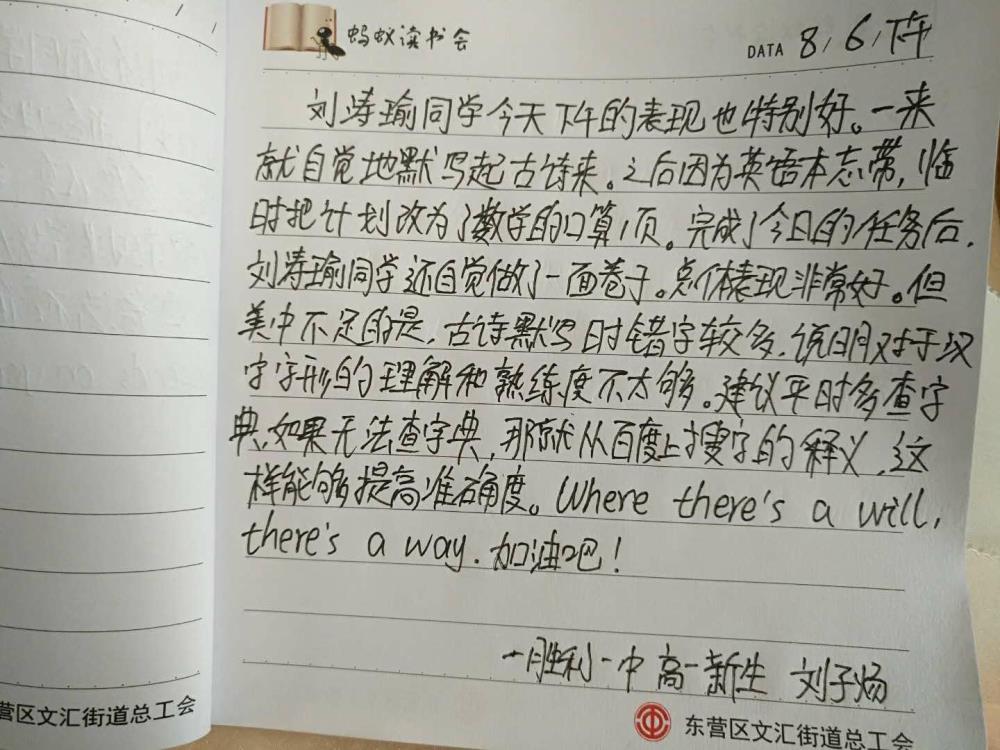 蚂蚁读书会
DATA 8/6/下午
刘涛瑜同学今天下午的表现也特别好。一来
就自觉地默写起古诗来。之后因为英语本忘带，临
时把计划改为了数学的口算1页。完成了今日的任务后，
刘涛瑜同学还自觉做了一面卷子。总体表现非常好。但
美中不足的是，古诗默写时错字较多，说明对于汉
字字形的理解和熟练度不太够。建议平时多查字
典、如果无法查字典，那就从百度上搜字的释义，这
样能够提高准确度。Where there's a will,
there's a way. 加油吧！
—胜利一中 高一新生 刘子炀
东营区文汇街道总工会
营区文汇街道总工会